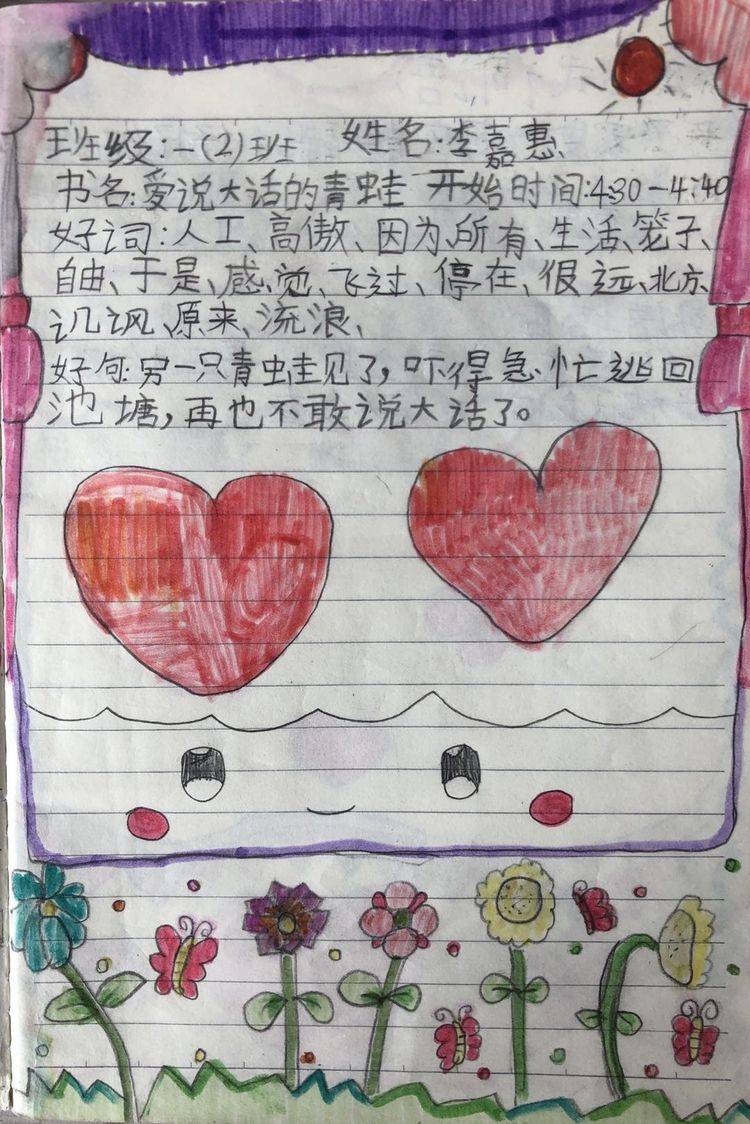 班级:一(2)班 姓名:李嘉惠
书名:爱说大话的青蛙 开始时间:4:30-4:40
好词:人工、高傲、因为、所有、生活、笼子、
自由、于是、感觉、飞过、停在、很远、北方、
讥讽、原来、流浪、
好句:另一只青蛙见了,吓得急忙逃回
池塘,再也不敢说大话了。